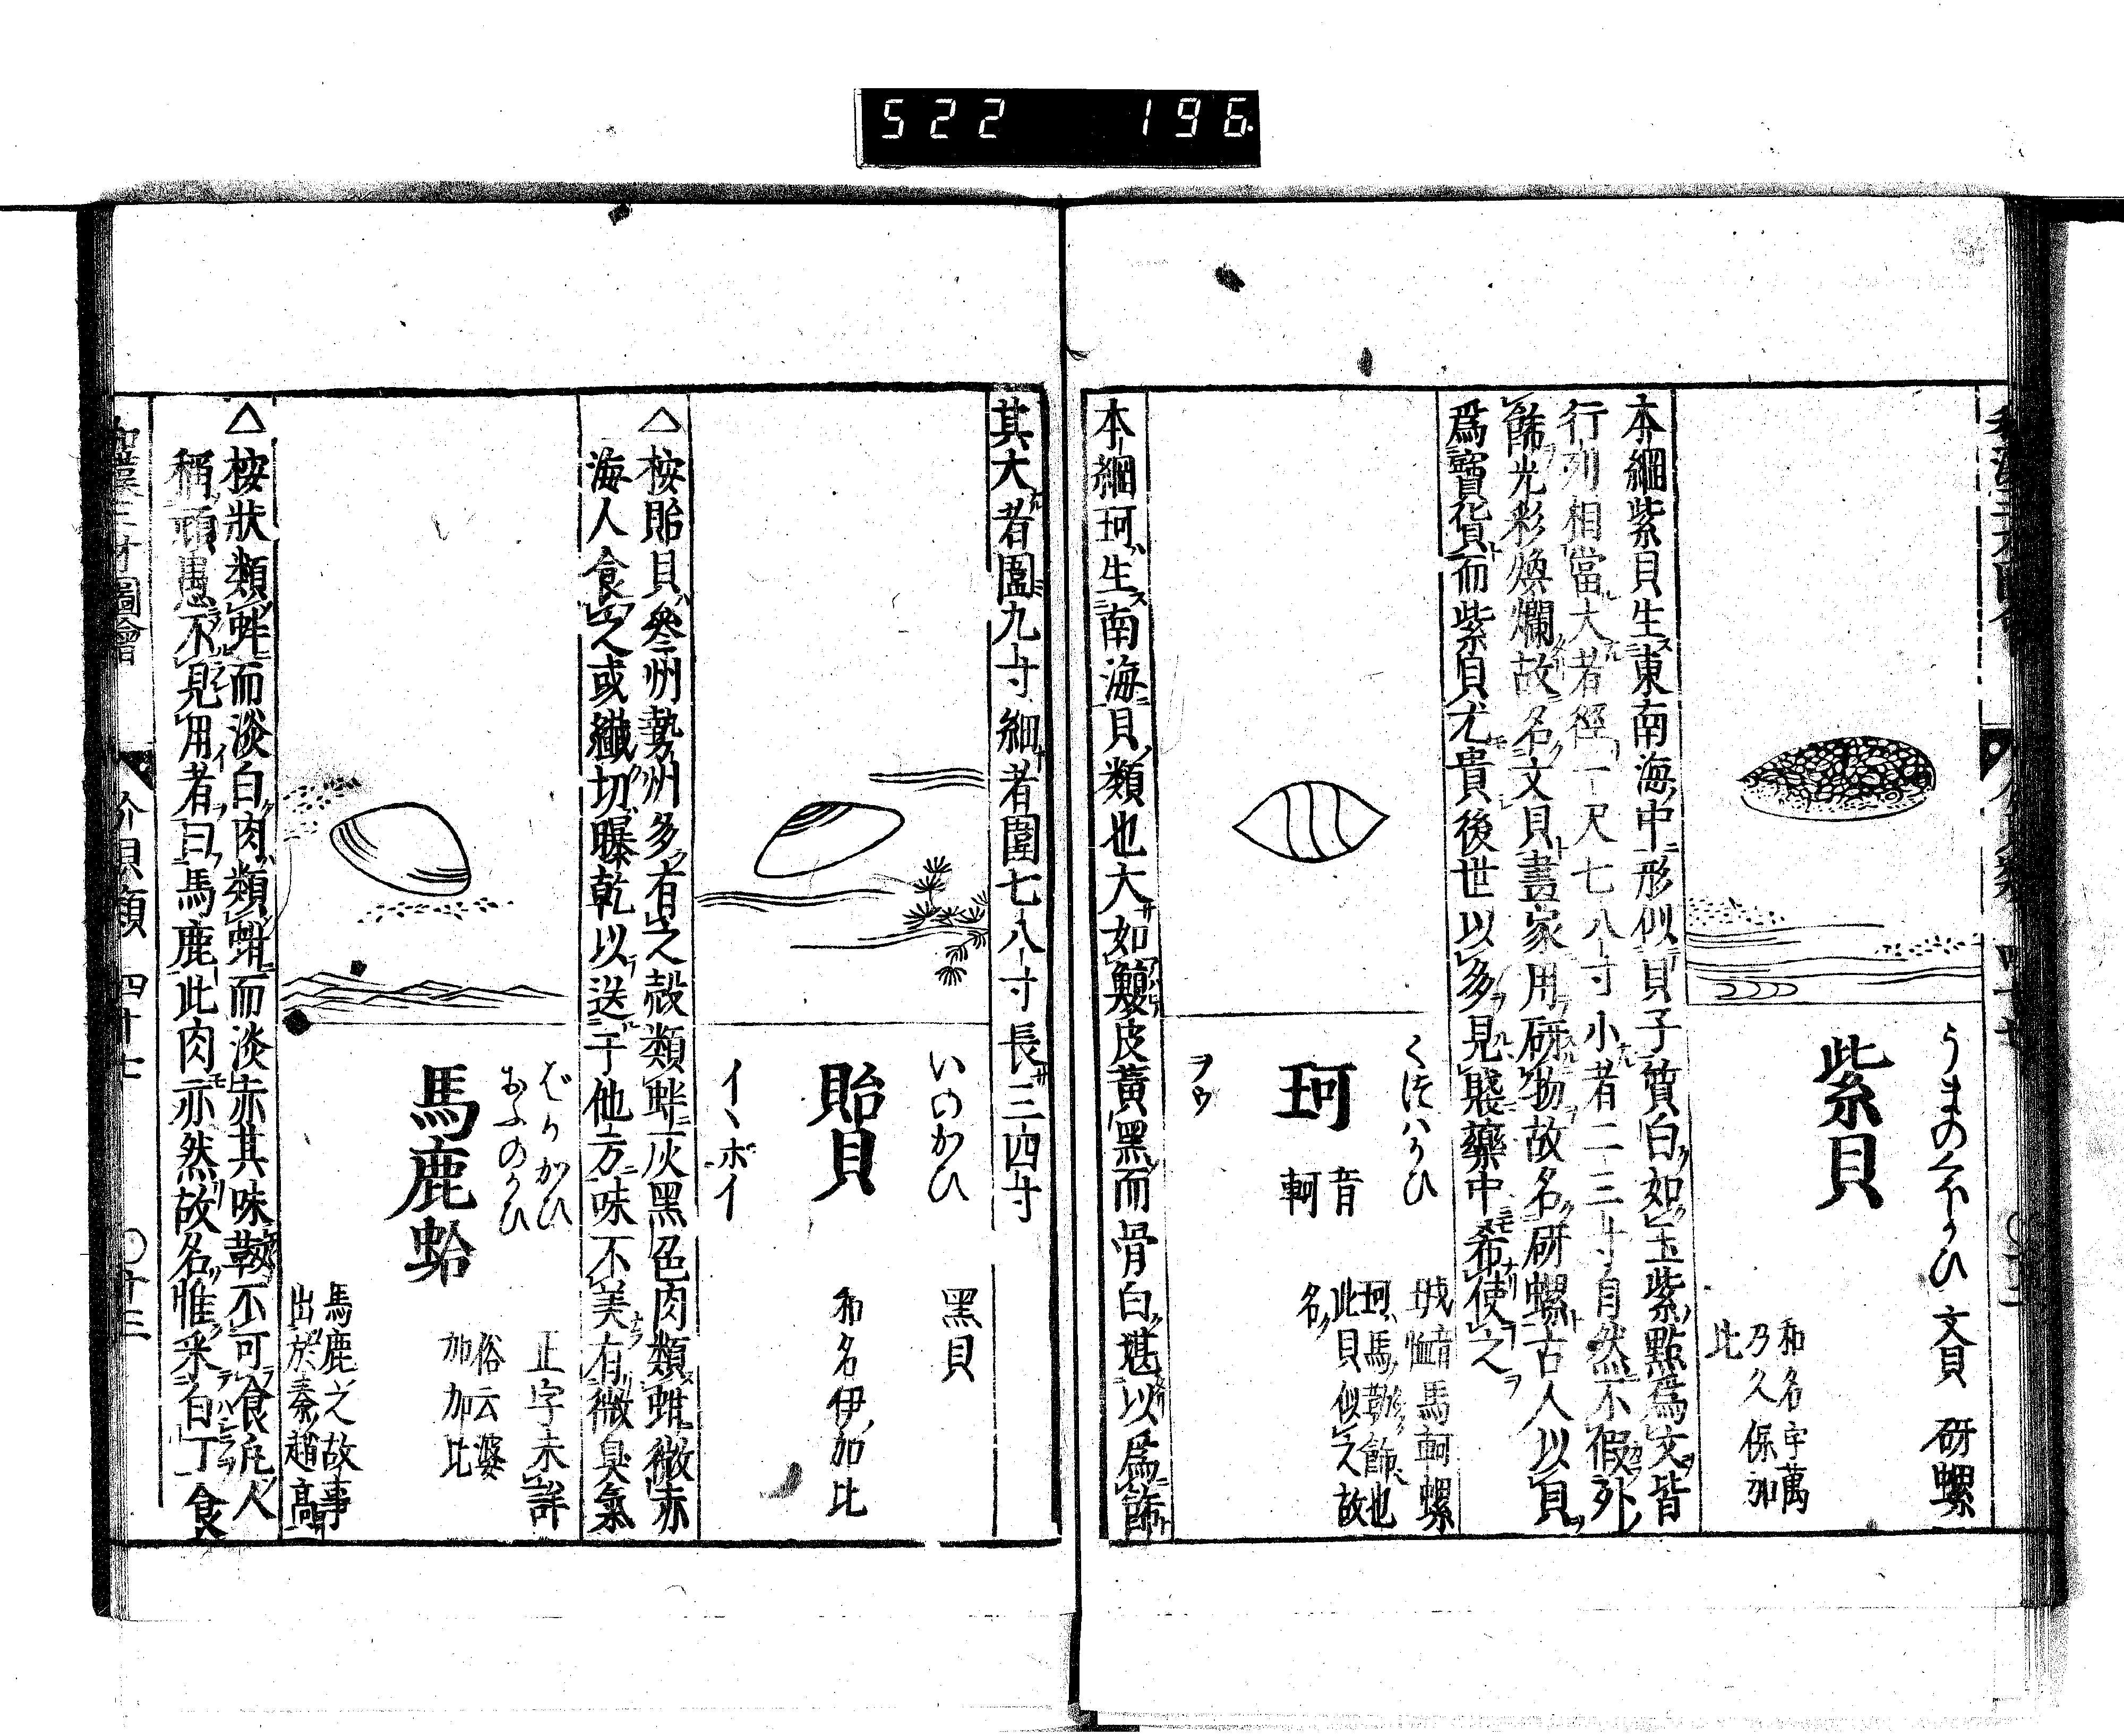 522 196
うまのくほかひ
文貝 研螺
紫貝
和名宇萬
乃久保加
比
本綱紫貝生東南海中形似貝子質白如玉紫點為文皆
行列相當大者徑一尺七八寸小者二三寸自然不假外
飾光彩煥爛故名文貝畫家用研物故名研螺古人以貝
為寶貨而紫貝尤貴後世以多見賤藥中希使之
くつわかひ
馬軻螺
珂 音軻
珂馬勒飾也
此貝似之故
名
ヲウ
本綱珂生南海貝類也大如鰒皮黃黑而骨白堪以為飾
其大者圍九寸細者圍七八寸長三四寸
いのかひ
黑貝
貽貝
和名伊加比
イヽボイ
△按貽貝參州勢州多有之殼類蚌灰黑色肉類蚶微赤
海人食之或纖切曝乾以送于他方味不美有微臭氣
ばかがひ
おふのかひ
正字未詳
俗云婆
加加比
馬鹿蛤
馬鹿之故事
出於秦趙高
△按狀類蚌而淡白肉類蚶而淡赤其味靱不可食凡人
稱頑愚不見用者曰馬鹿此肉亦然故名惟釆白丁食
和漢三才圖會
介貝類 四十七
〇廿三